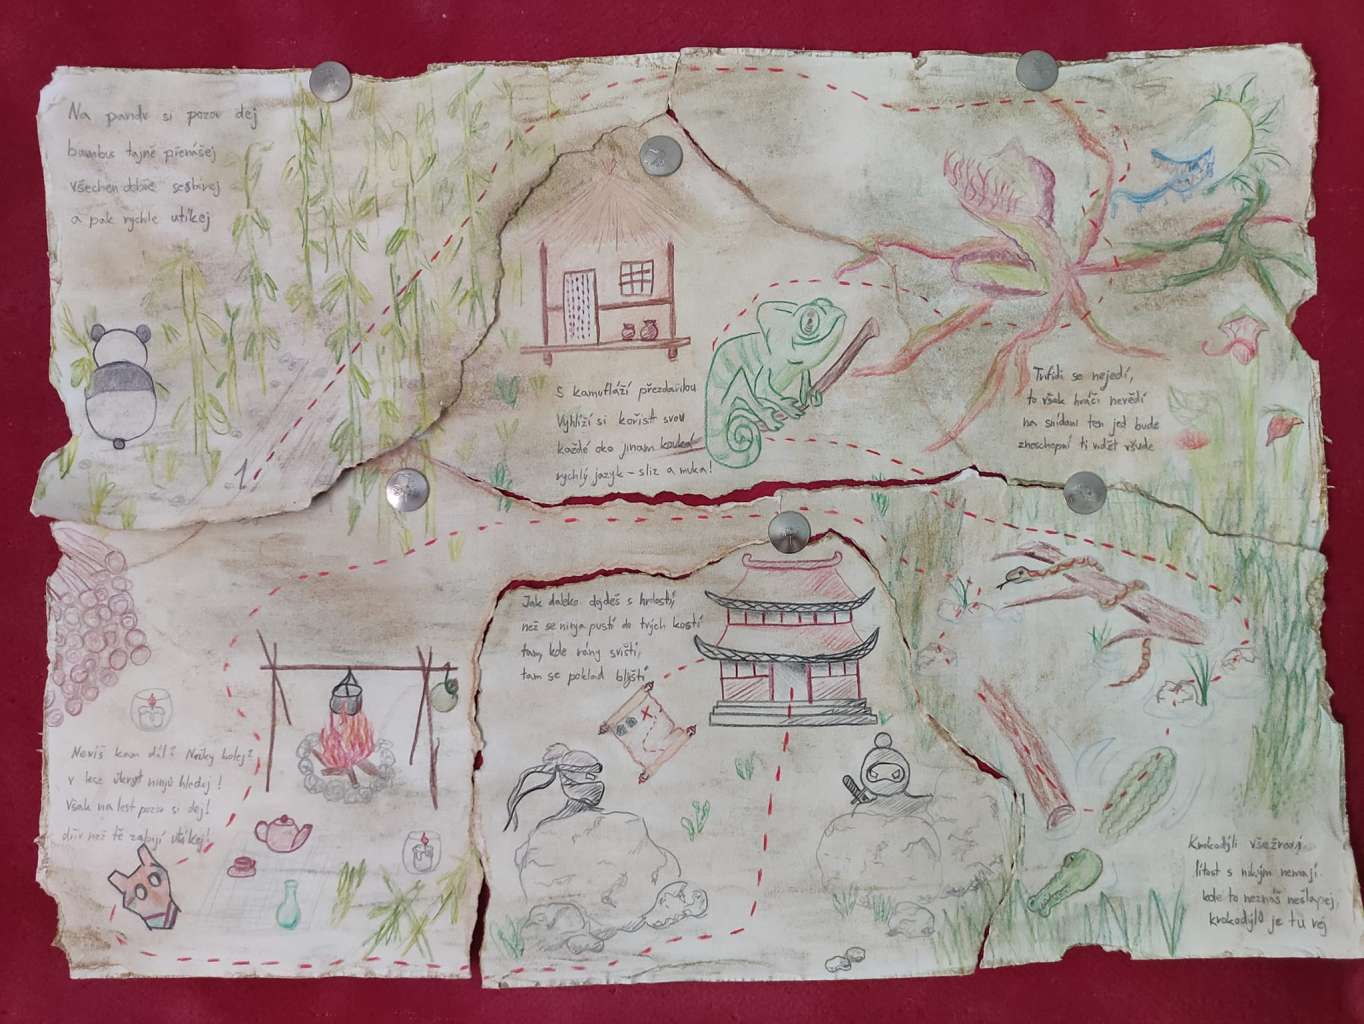 Na pandu si pozor dej
bambus tajně přenášej
všechen dobře sesbírej
a pak rychle utíkej
S kamufláží přezdařilou
Vyhlíží si kořist svou
každé oko jinam kouká
rychlý jazyk - sliz a muka!
Trifidi se nejedí,
to však hráči nevědí
na snídani ten jed bude
zneschopní ti vidět všude
Nevíš kam dál? Nožky bolej?
v lese úkryt ninjů hledej!
Však na lest pozor si dej!
dřív než tě zabijí utíkej!
Jak daleko dojdeš s hrdostí,
než se ninja pustí do tvých kostí
tam, kde rány sviští,
tam se poklad blýští
Krokodýli všežraví,
lítost s nikým nemají
kde to neznáš nešlapej,
krokodýlů je tu rej